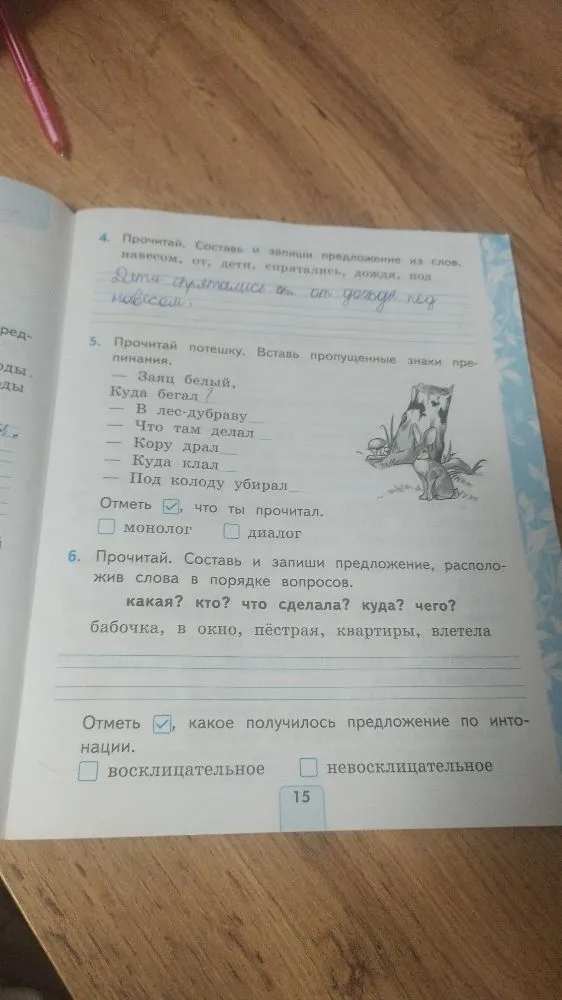 4. Прочитай. Составь и запиши предложение из слов.
навесом, от, дети, спрятались, дождя, под
Дети спрятались от дождя под
навесом.
5. Прочитай потешку. Вставь пропущенные знаки пре-
пинания.
— Заяц белый,
Куда бегал?
— В лес-дубраву__
— Что там делал__
— Кору драл__
— Куда клал__
— Под колоду убирал__
Отметь ✓, что ты прочитал.
монолог диалог
6. Прочитай. Составь и запиши предложение, располо-
жив слова в порядке вопросов.
какая? кто? что сделала? куда? чего?
бабочка, в окно, пёстрая, квартиры, влетела
Отметь ✓, какое получилось предложение по инто-
нации.
восклицательное невосклицательное
15
ред-
оды.
оды
й